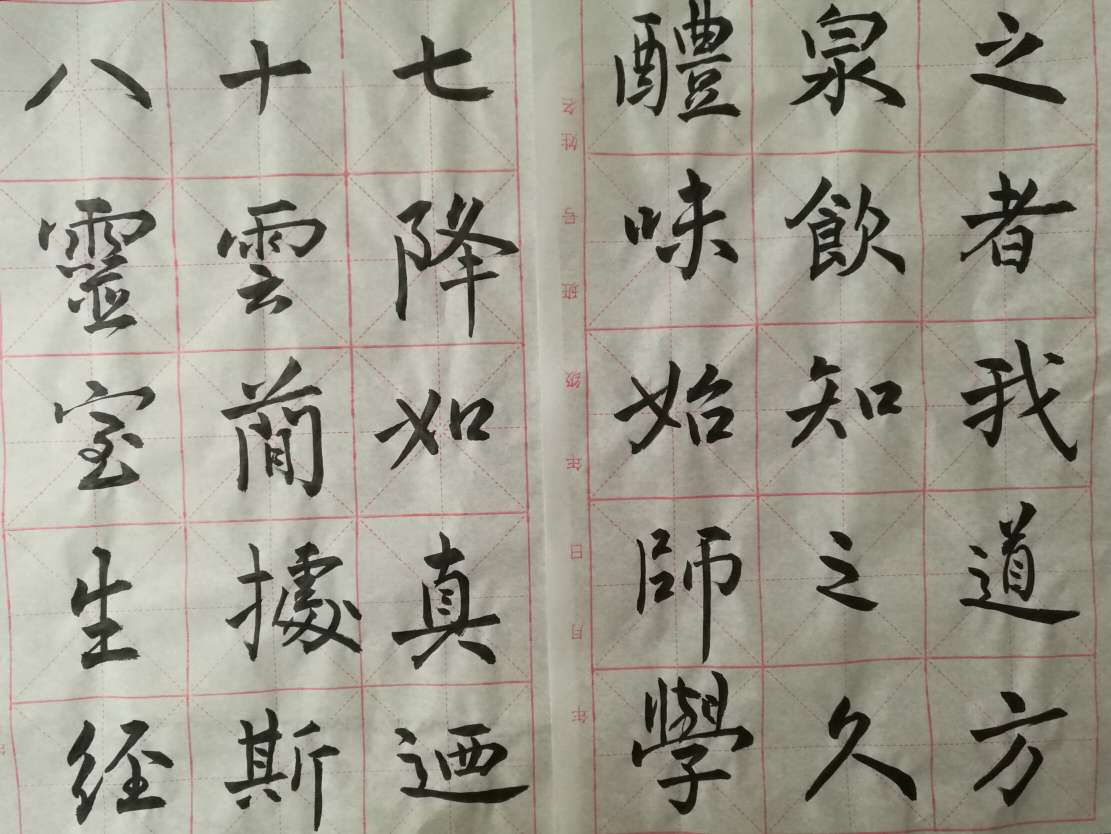 之者我道方
泉飲知之久
醴味始師學
年 月 日 年 级 班 号 姓名
七降如真迺
十雲簡據斯
八靈室生経